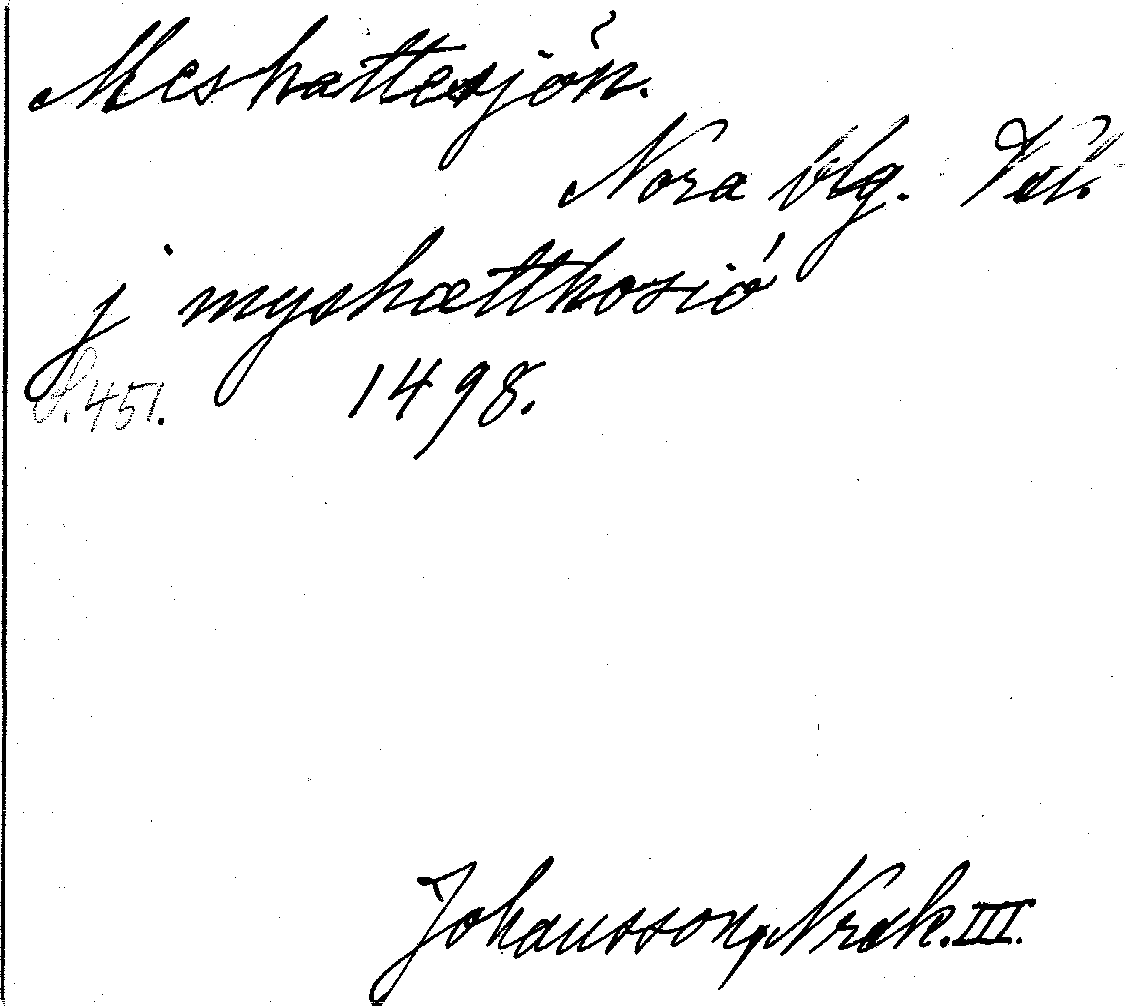 Meshattesjön.
Nora blg. Vstl.
j myshætthosió
S. 451. 1498.
Johansson, Nrak. III.